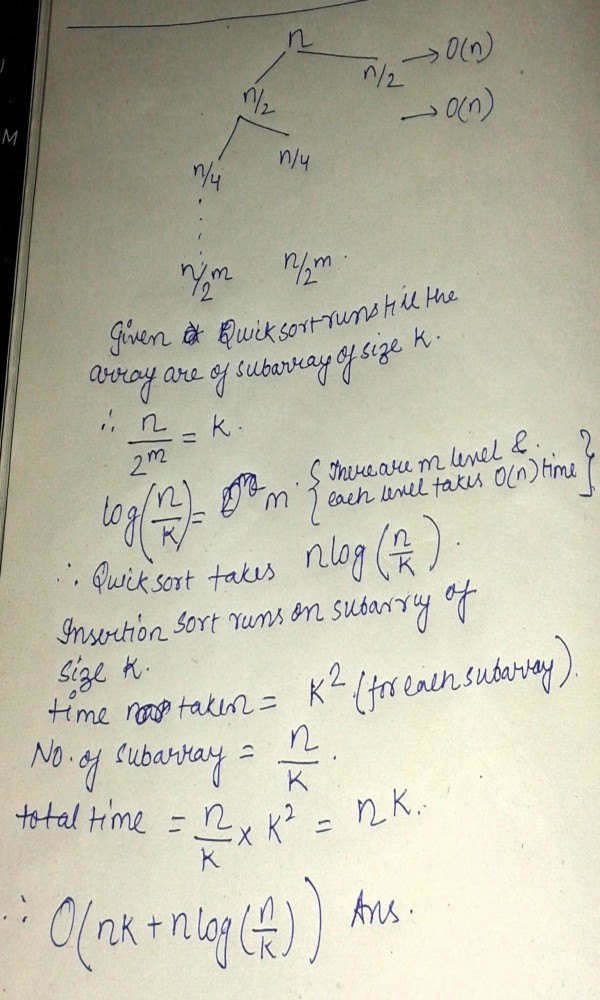 M
n
n/2 → O(n)
n/2 → O(n)
n/4 n/4
n/2^m n/2^m
Given Quiksort runs till the
array are of subarray of size K.
∴ n/2^m = K.
log(n/K) = m {There are m level & each level takes O(n) time}
∴ Quiksort takes n log(n/K).
Insertion sort runs on subarry of
size K.
time taken = K² (for each subarray).
No. of subarray = n/K.
total time = n/K × K² = nK.
∴ O(nK + n log(n/K)) Ans.